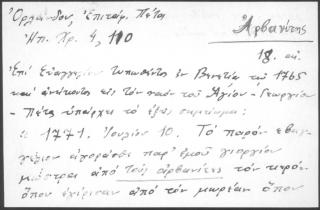 Ὀρλάνδου, Ἐπιτάφ. Πέτα,
Ἠπ. Χρ. 4, 110
Ἀρβανίτης
18. αἰ.
Ἐπὶ Εὐαγγελίου τυπωθέντος ἐν Βενετίᾳ τῷ 1765
καὶ ἀνήκοντος εἰς τὸν ναὸν τοῦ Ἁγίου - Γεωργίου
- Πέτα ὑπάρχει τὸ ἑξῆς σημείωμα:
« 1771. Ἰουλίου 10. Τὸ παρὸν εβαγ-
γέλιον αποράσθι παρ' ἐμοῦ γιοργίου
ἀπὸ τοὺς αρβανίτες τὸν
ὅπου ἀπὸ τὸν μωρέαν ὅπου